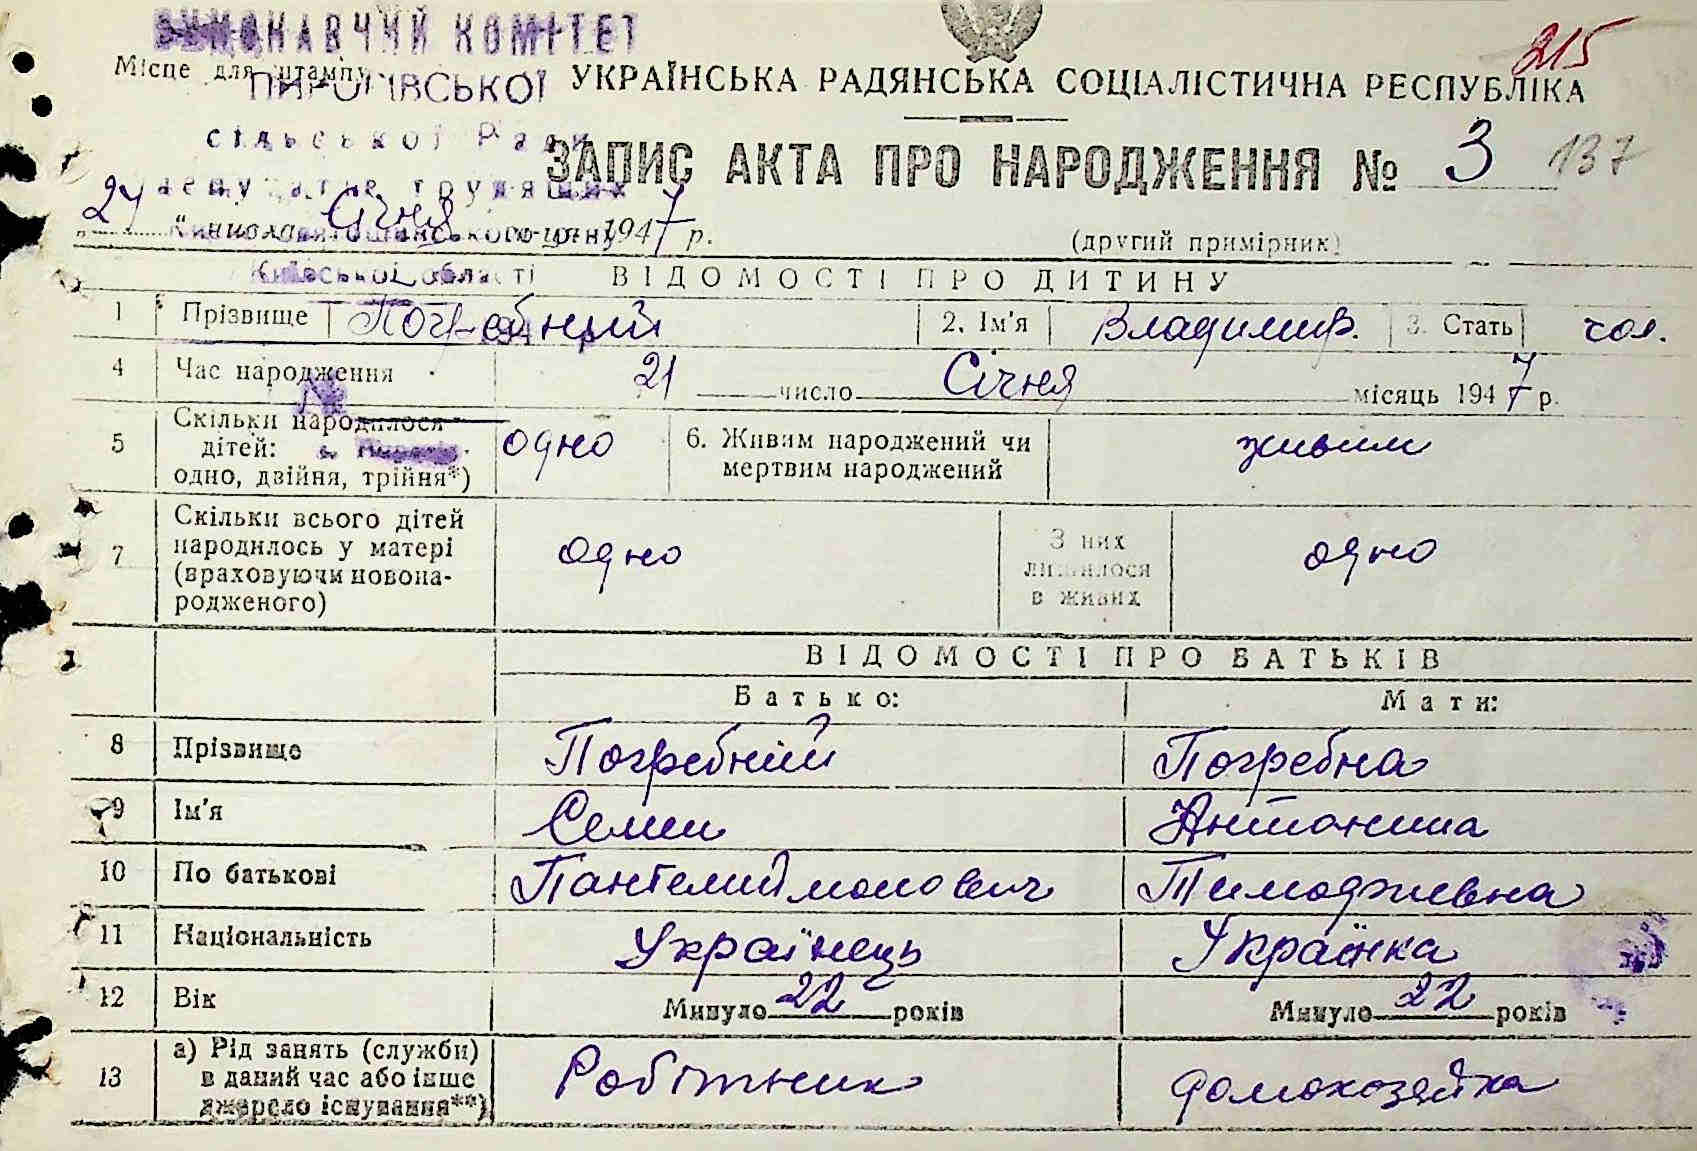 ВИКОНАВЧИЙ КОМІТЕТ
215
Місце для штампу
ПИРОГІВСЬКОЇ
УКРАЇНСЬКА РАДЯНСЬКА СОЦІАЛІСТИЧНА РЕСПУБЛІКА
сільської Ради
ЗАПИС АКТА ПРО НАРОДЖЕННЯ № 3 137
депутатів трудящих
Січня 1947 р.
(другий примірник)
Київської області
ВІДОМОСТІ ПРО ДИТИНУ
1 Прізвище Погребний 2. Ім'я Владимир. 3. Стать чол.
4 Час народження 21 число Січня місяць 1947 р.
5 Скільки народилося дітей: одно, двійня, трійня*) одно 6. Живим народжений чи мертвим народжений живим
7 Скільки всього дітей народилось у матері (враховуючи новонародженого) одно З них лишилося в живих одно
ВІДОМОСТІ ПРО БАТЬКІВ
Батько: Мати:
8 Прізвище Погребний Погребна
9 Ім'я Семен Антонина
10 По батькові Пантелиймонович
11 Національність Українець Українка
12 Вік Минуло 22 років Минуло 22 років
13 а) Рід занять (служби) в даний час або інше джерело існування**) Робітник домохозяйка